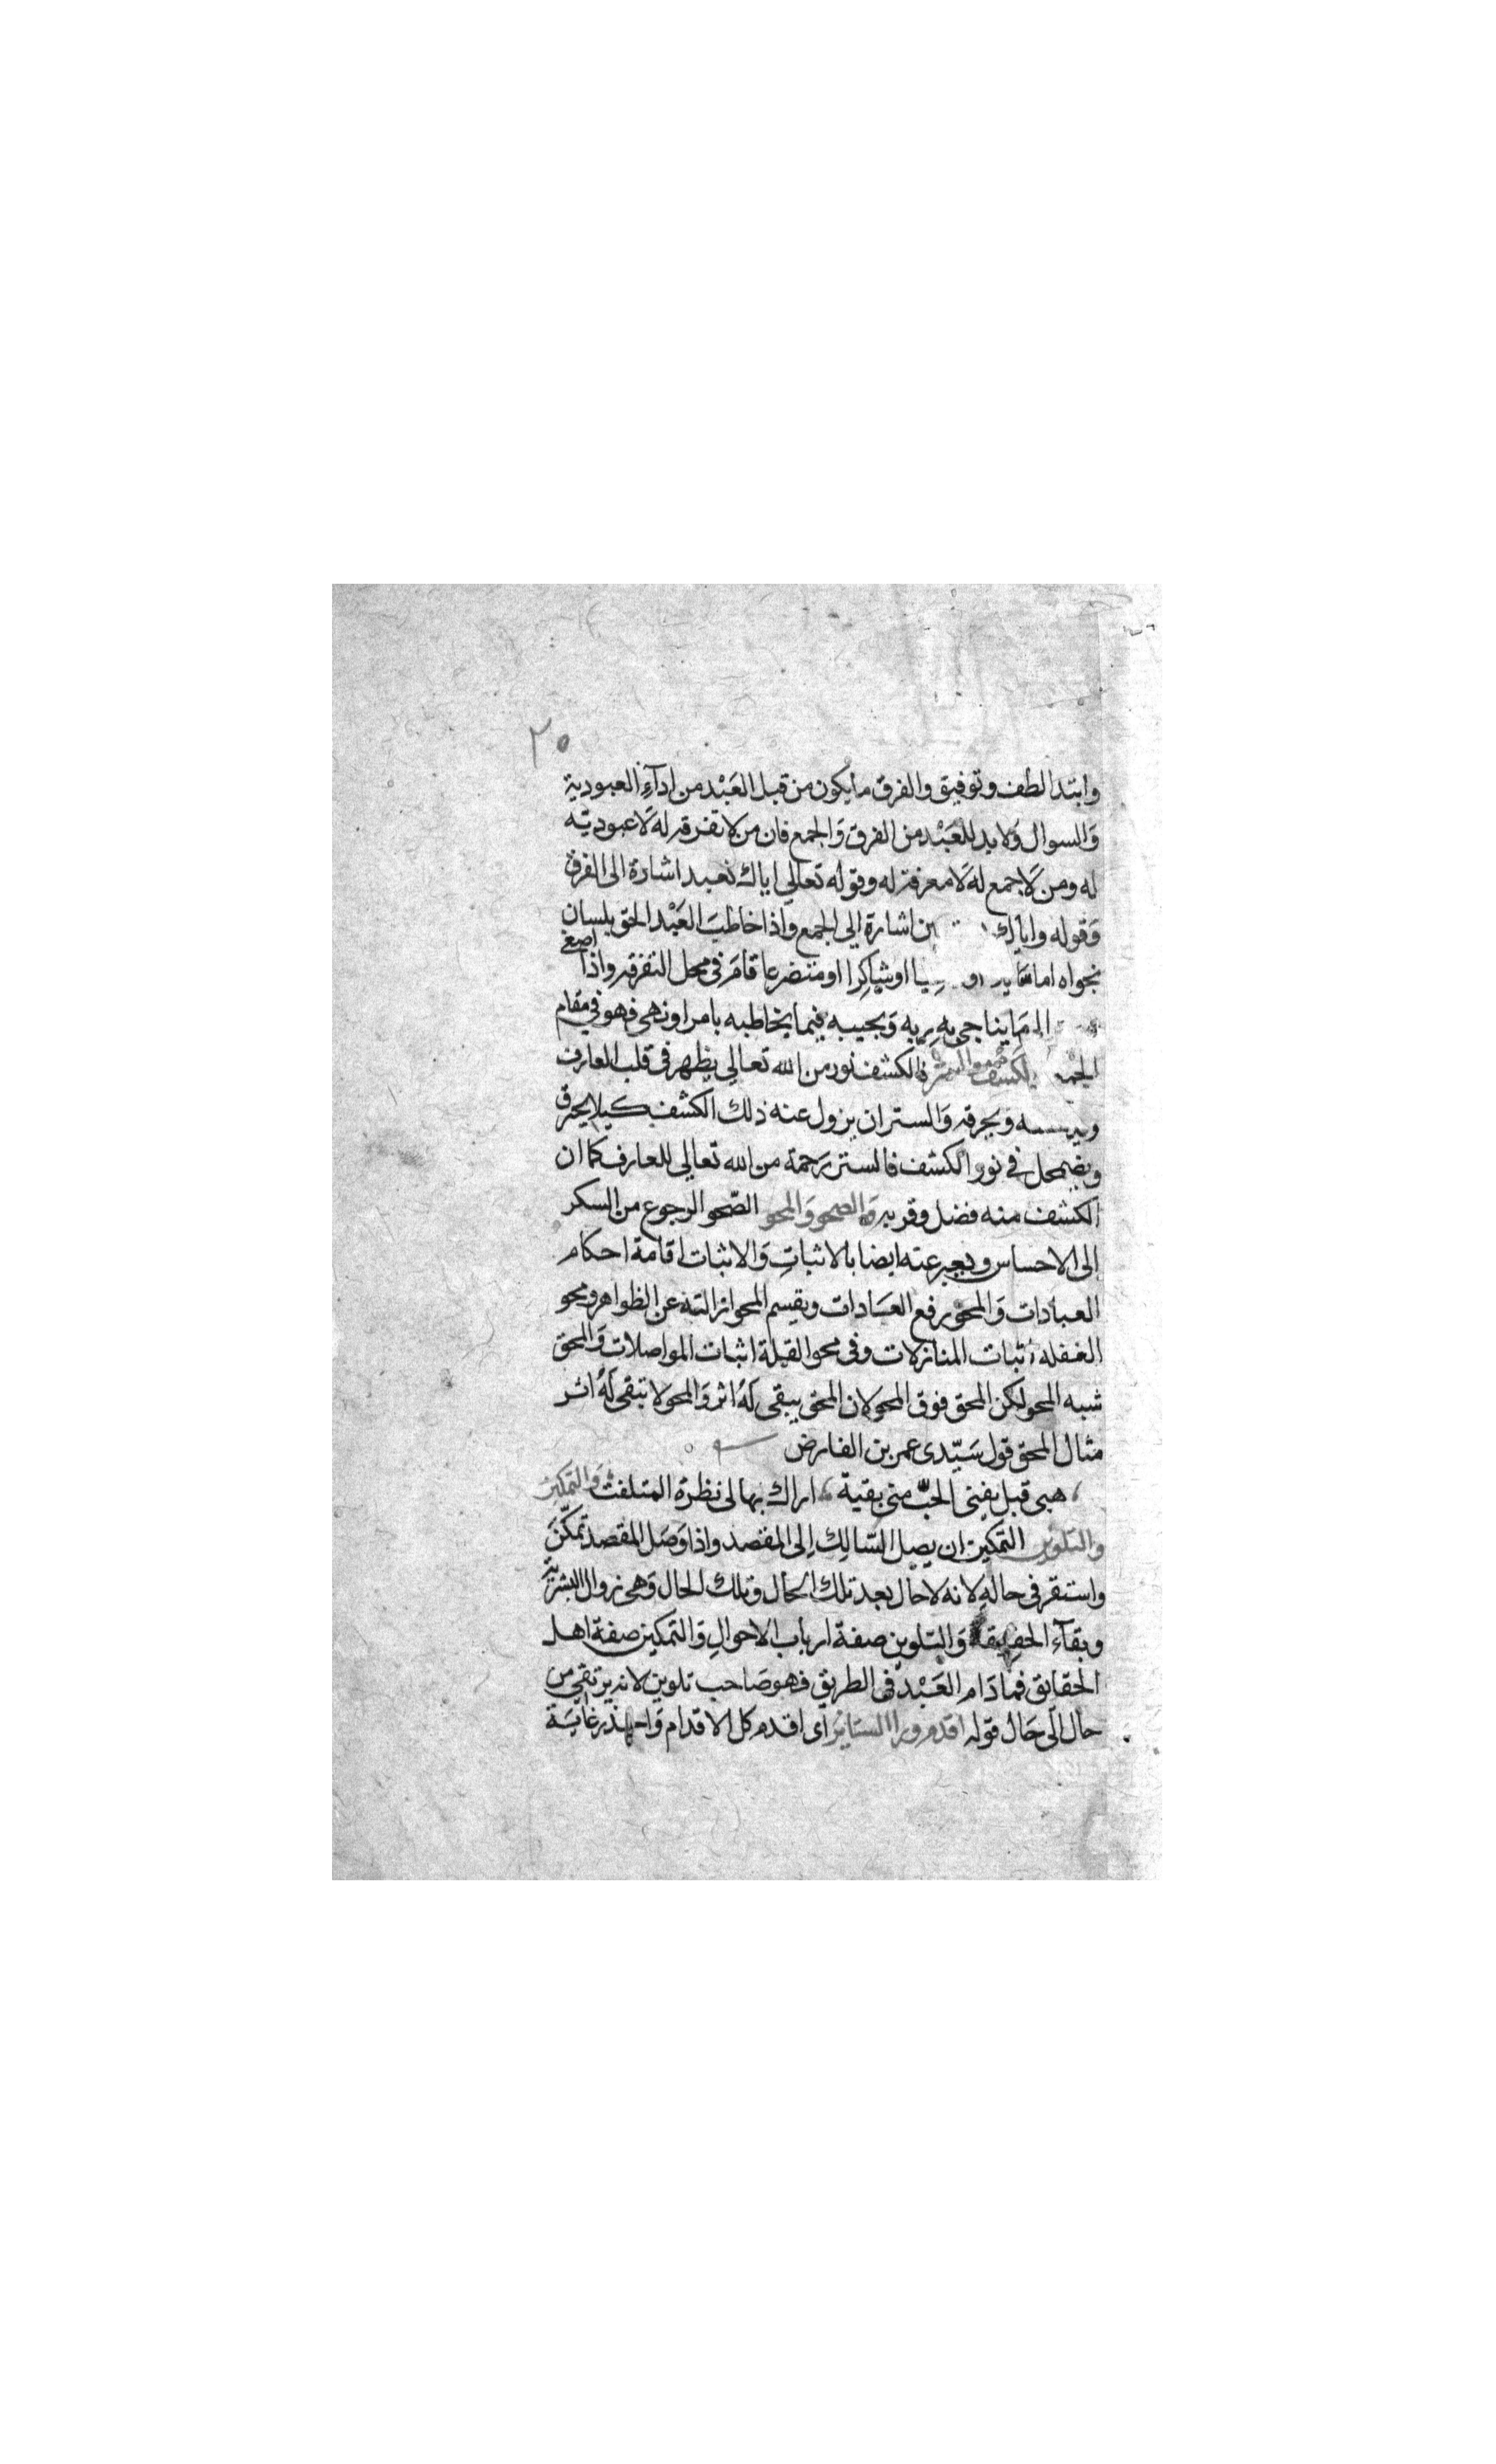 ٢٠
وابتدا لطف وتوفيق والفرق ما يكون من قبل العَبْد من ادآءِ العبودية
وَالسوال وَلابد للعَبْد من الفرق وَالجمع فان من لا تفرقه له لَا عبوديته
له ومن لَاجمع له لَا معرفة له وقوله تعالي اياك نعبد اشارة الى الفرق
وَقوله واياك ين اشارة الي الجمع واذا خاطبَ العَبْد الحق بلسان
نجواه اما او شاكِرا او متضرعا قامَ فى محل التفرقه واذا اصغى
الى مَا يناجى به رِبه وَيجيبه فيما يخاطبه بامر او نهى فهو في مقام
الجمع الكشف والستر فالكشف نور من الله تعالي يظهر فى قلب العارف
ويحرقه وَالستر ان يزول عنه ذلك الكشف كيلا يحترق
ويضمحل في نور الكشف فالستر رَحمة من الله تعالي للعارف كما ان
الكشف منه فضل وقربه وَالصحو وَالمحو الصّحو الرجوع من السكر
إلى الاحساس ويعبر عنه ايضا بالاثباتِ وَالاثبات اقامة احكام
العبادات وَالمحو رفع العَادات ويقسم المحو ازالته عن الظواهر ومحو
الغفله اثبات المنازلات وفى محو القبلة اثبات المواصلات وَالمحق
شبه المحو لكن المحق فوق المحو لان المحق يبقى لَهُ اثر وَالمحو لا تبقى لَهُ اثر
مثال المحق قول سَيّدى عمر بن الفارض
هبى قبل يفنى الحبّ منى بقية اراك بها لى نظرة المتلفت وَالتمكين
والتلوين التمكين ان يصل السّالِك اِلى المقصد واذا وَصَل المقصد تمكّنَ
واستقر فى حالهِ لانه لا حال بعد تلك الحال وتلك الحال وَهى زوال البشرية
وبقآء الحقيقة وَالتلوين صفة ارباب الاحوالِ وَالتمكين صفة اهل
الحقايق فما دَام العَبْد فى الطريق فهو صَاحب تلوين لانه يرتقى من
حال الَى حَال قوله اقدم ورا الستاير اى اقدم كل الاقدام وَاحذر غايَة